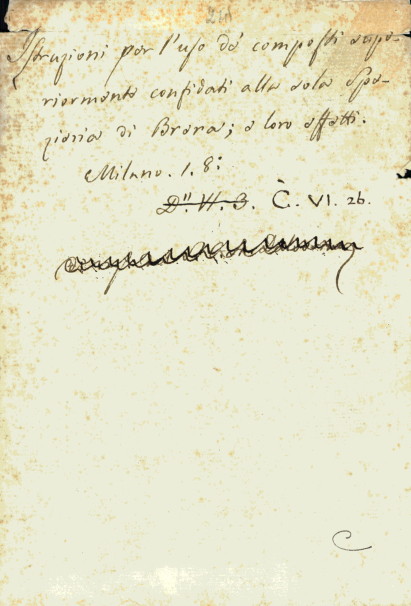 Istruzioni per l'uso de' composti supe-
riormente confidati alla sola Spe-
zieria di Brera; e loro effetti.
Milano. 1. 8°
D'' H. 3. C. VI. 26.
C